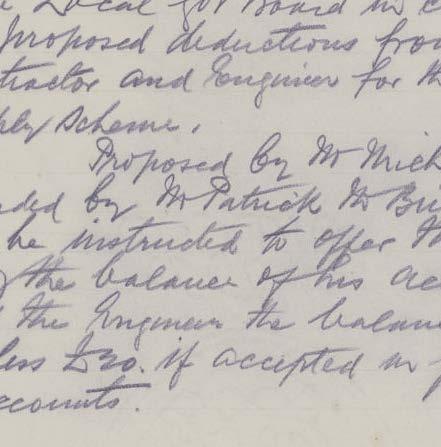 Local Gov Board in
proposed deductions from
tractor and Engineer for th
ply Scheme.
Proposed by Mr Mich
nded by Mr Patrick Mc Bri
be instructed to offer th
the balance of his ac
the Engineer the balanc
less £20. if accepted in f
ccounts.